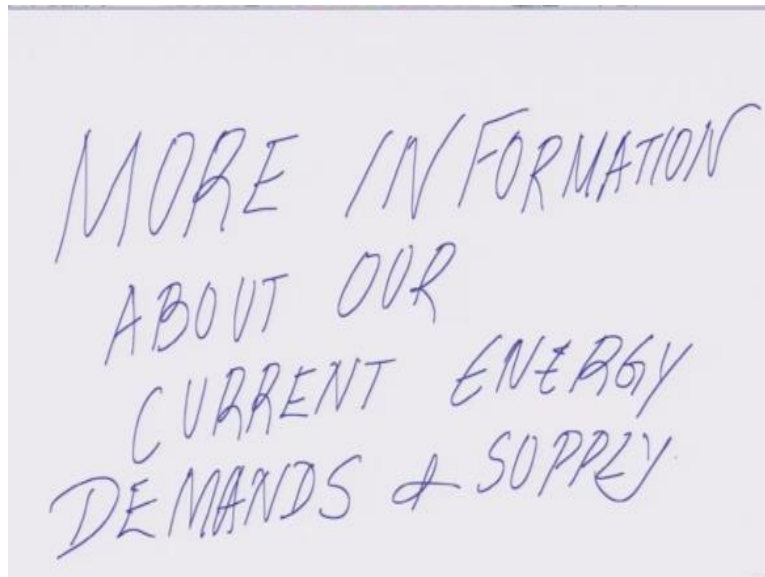 MORE INFORMATION
ABOUT OUR
CURRENT ENERGY
DEMANDS & SUPPLY